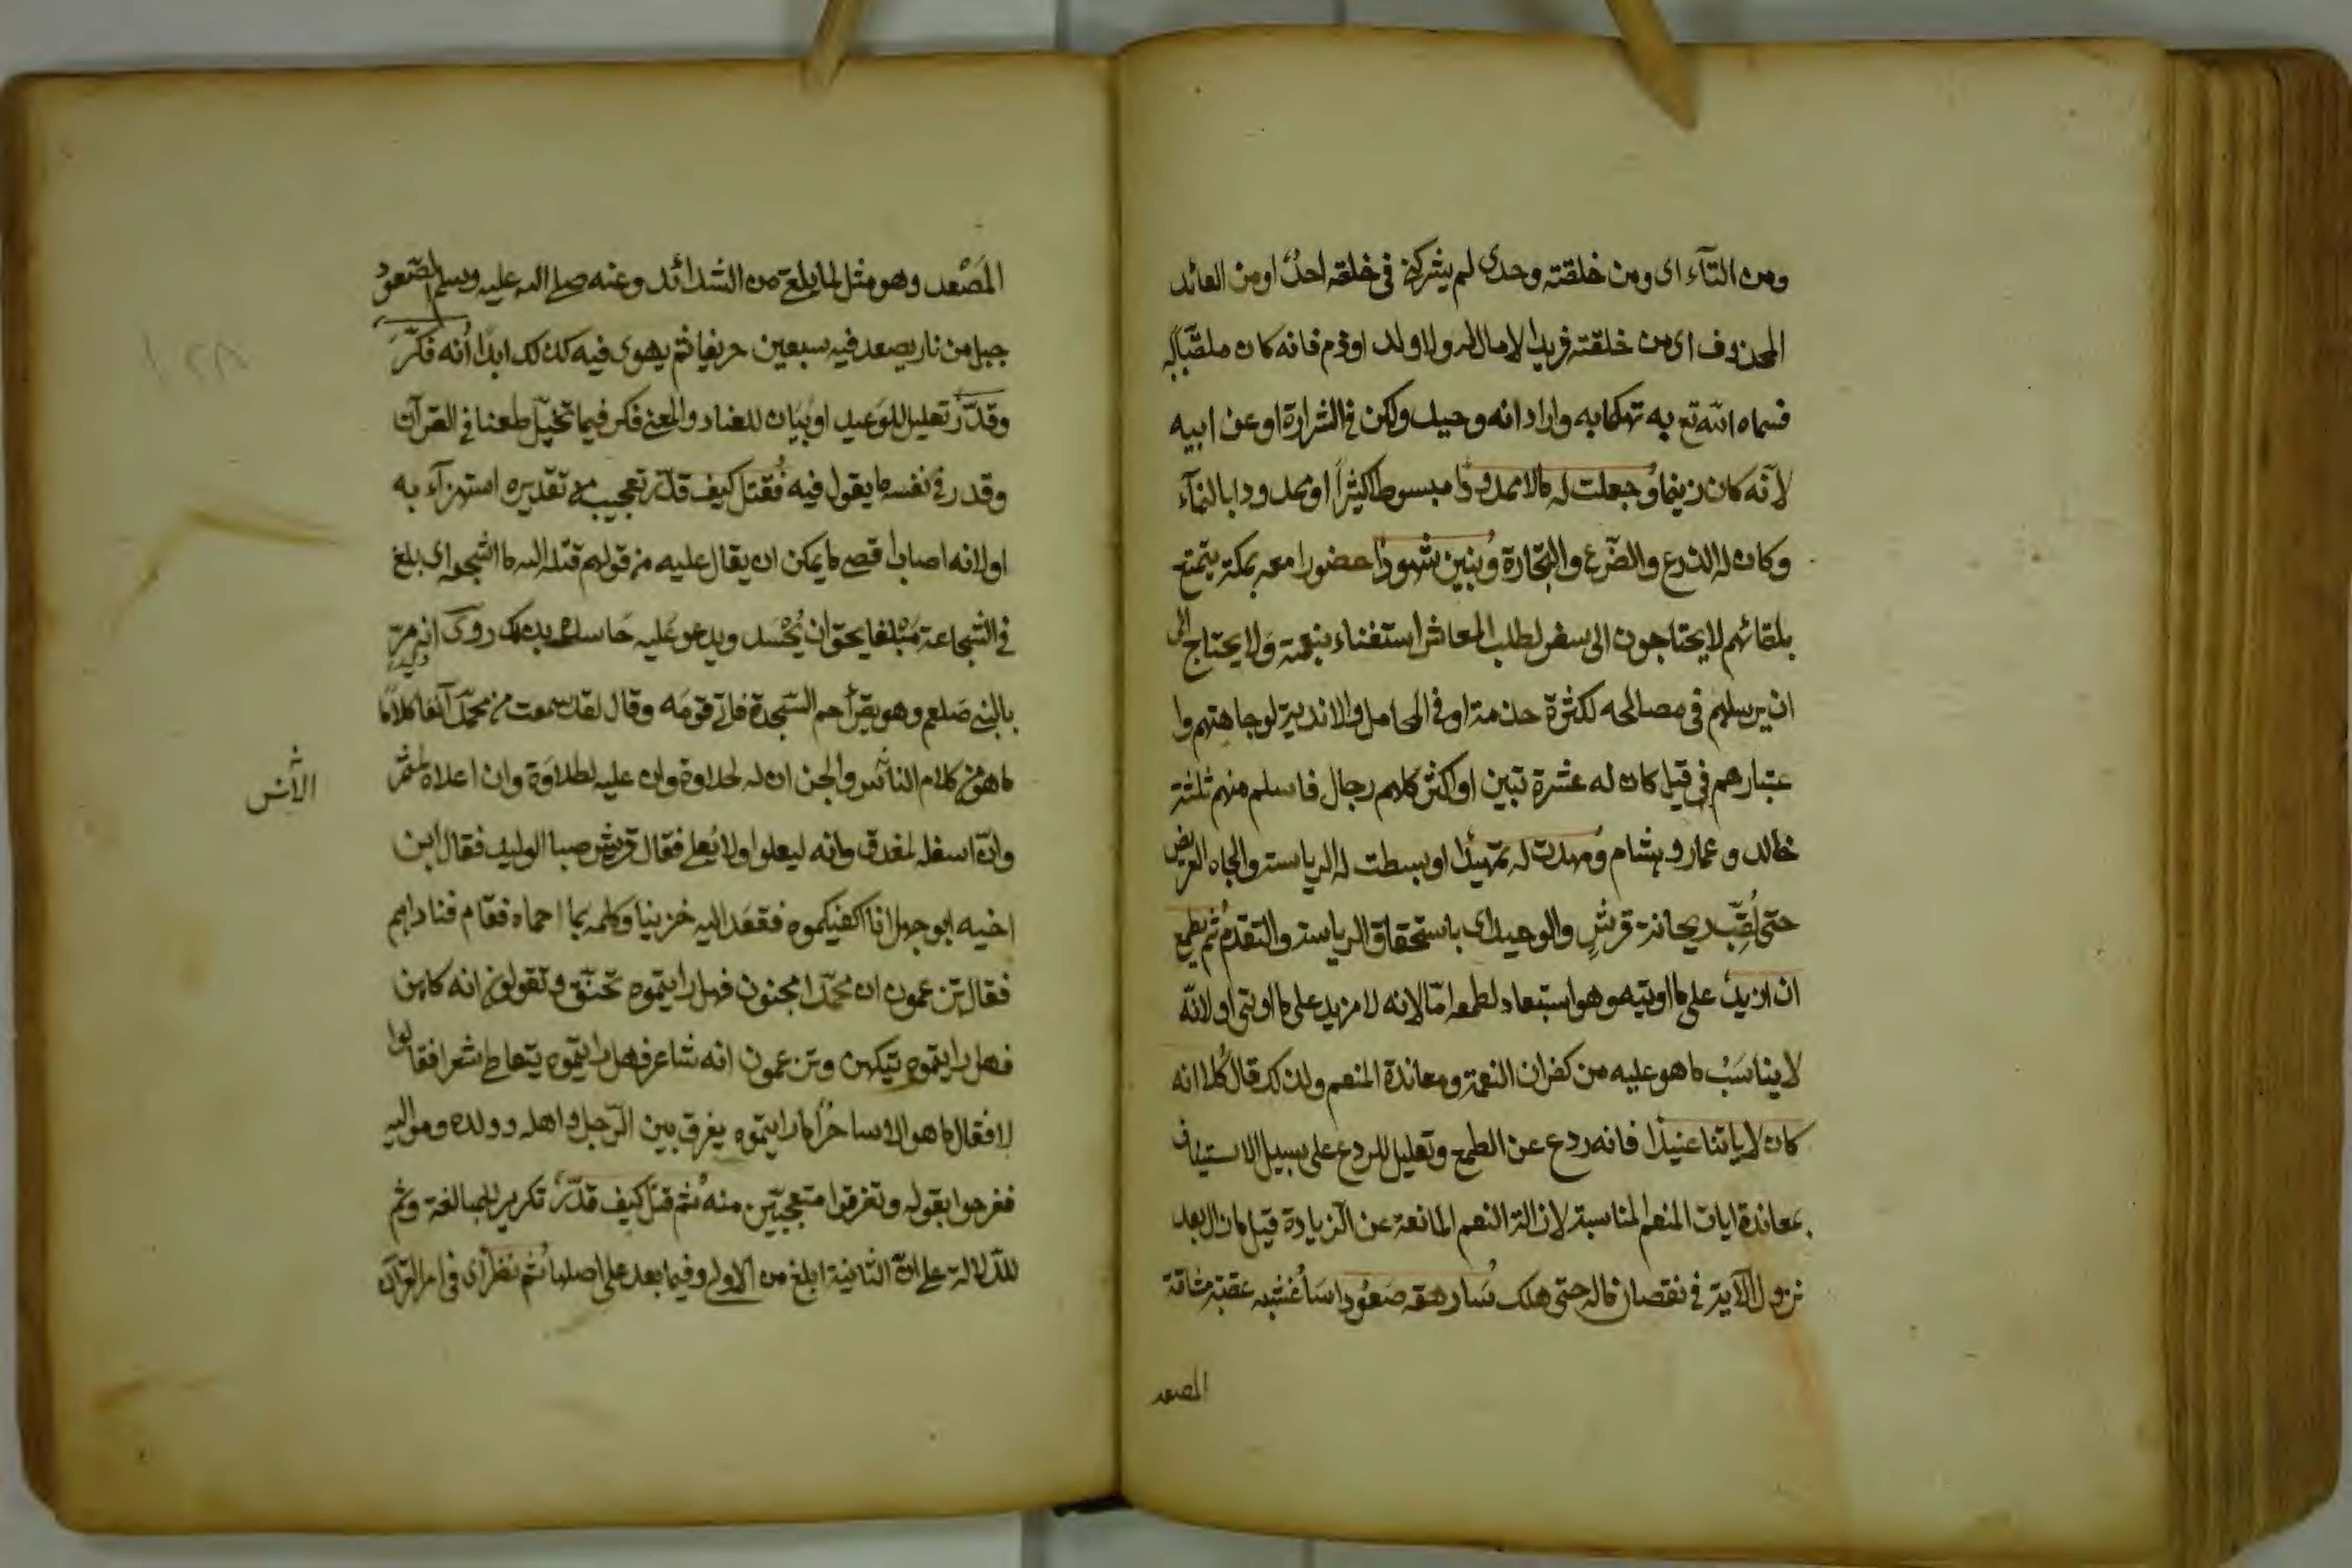 ومن التآء اى ومن خلقته وحدى لم يشركنى فى خلقه احدٌ اومن العائد
المحذوف اى من خلقته فريدا لامال له ولا ولد او ذم فانه كان ملقبا به
فسماه الله تع به تهكما به واراد انه وحيد ولكن فى الشرارة اوعن ابيه
لانّه كان زنيما وجعلت له مالا ممدودا مبسوطا كثيراً او ممدودا بالنمآء
وكان له الذرع والضّرع والتجارة وبنين شهودا حضورا معه بمكة يتمتع
بلقائهم لا يحتاجون الى سفر لطلب المعاش استغناء بنعمته ولا يحتاج الى
ان يرسلهم فى مصالحه لكثرة خدمته او فى المحافل والاندية لوجاهتهم وا
عتبارهم فى قيل كان له عشرة بنين او اكثر كلهم رجال فاسلم منهم ثلثة
خالد و عمار و هشام ومهدت له تمهيدا او بسطت له الرياسة والجاه العريض
حتى لُقِّب ريحانة قريش والوحيد اى باستحقاق الرياسة والتقدم ثم يطمع
ان ازيد على ما اوتيه وهو استبعاد لطمعه امّا لانه لا مزيد على ما اوتى او لانّه
لا يناسب ما هو عليه من كفران النعمة ومعاندة المنعم ولذلك قال كلا انه
كان لاياتنا عنيدا فانه ردع عن الطمع وتعليل للردع على سبيل الاستيناف
بمعاندة ايات المنعم المناسبة لازالة النعم المانعة عن الزيادة قيل ما زال بعد
نزول الآية فى نقصان ماله حتى هلك سارهقه صعودا ساغشيه عقبة شاقة
المصعد
المَصْعد وهو مثل لما يلقى من الشدائد وعنه صلى الله عليه وسلم الصعود
جبل من نار يصعد فيه سبعين خريفا ثم يهوى فيه كذلك ابدا انه فكّر
وقدّر تعليل للوعيد او بيان للعناد والمعنى فكر فيما تخيّل طعنا فى القرآن
وقدر فى نفسه ما يقول فيه فقتل كيف قدّر تعجيب من تقديره استهزآء به
اولانه اصاب اقصى ما يمكن ان يقال عليه من قولهم قتله الله ما اشجعه اى بلغ
فى الشجاعة مبلغا يحق ان يُحْسَد ويدعو عليه حاسده بذلك روى انه مرّ
بالنبى صلعم وهو يقرأ حم السّجدة فاتى قومه وقال لقد سمعت من محمّد آنفا كلامًا
ما هو من كلام الناس والجن ان له لحلاوة وان عليه لطلاوة وان اعلاه لمثمر
الانس
وانّ اسفله لمغدق وانه ليعلوا ولا يُعلى فقال قريش صبا الوليد فقال ابن
اخيه ابو جهل انا اكفيكموه فقعد اليه حزينا وكلمه بما احماه فقام فناداهم
فقال تزعمون ان محمّدا مجنون فهل رايتموه تخنّق وتقولون انه كاهن
فهل رايتموه يتكهن وتزعمون انه شاعر فهل رايتموه يتعاطى شعرا فقالوا
لا فقال ما هو الا ساحرٌ اما رايتموه يفرق بين الرّجل واهله وولده ومواليه
ففرحوا بقوله وتفرقوا متعجبّين منه ثم قتل كيف قدّر تكرير للمبالغة وثم
للدّلالة على انّ الثانية ابلغ من الاولى وفيما بعد على اصلها ثم نظر اى فى امر القرآن